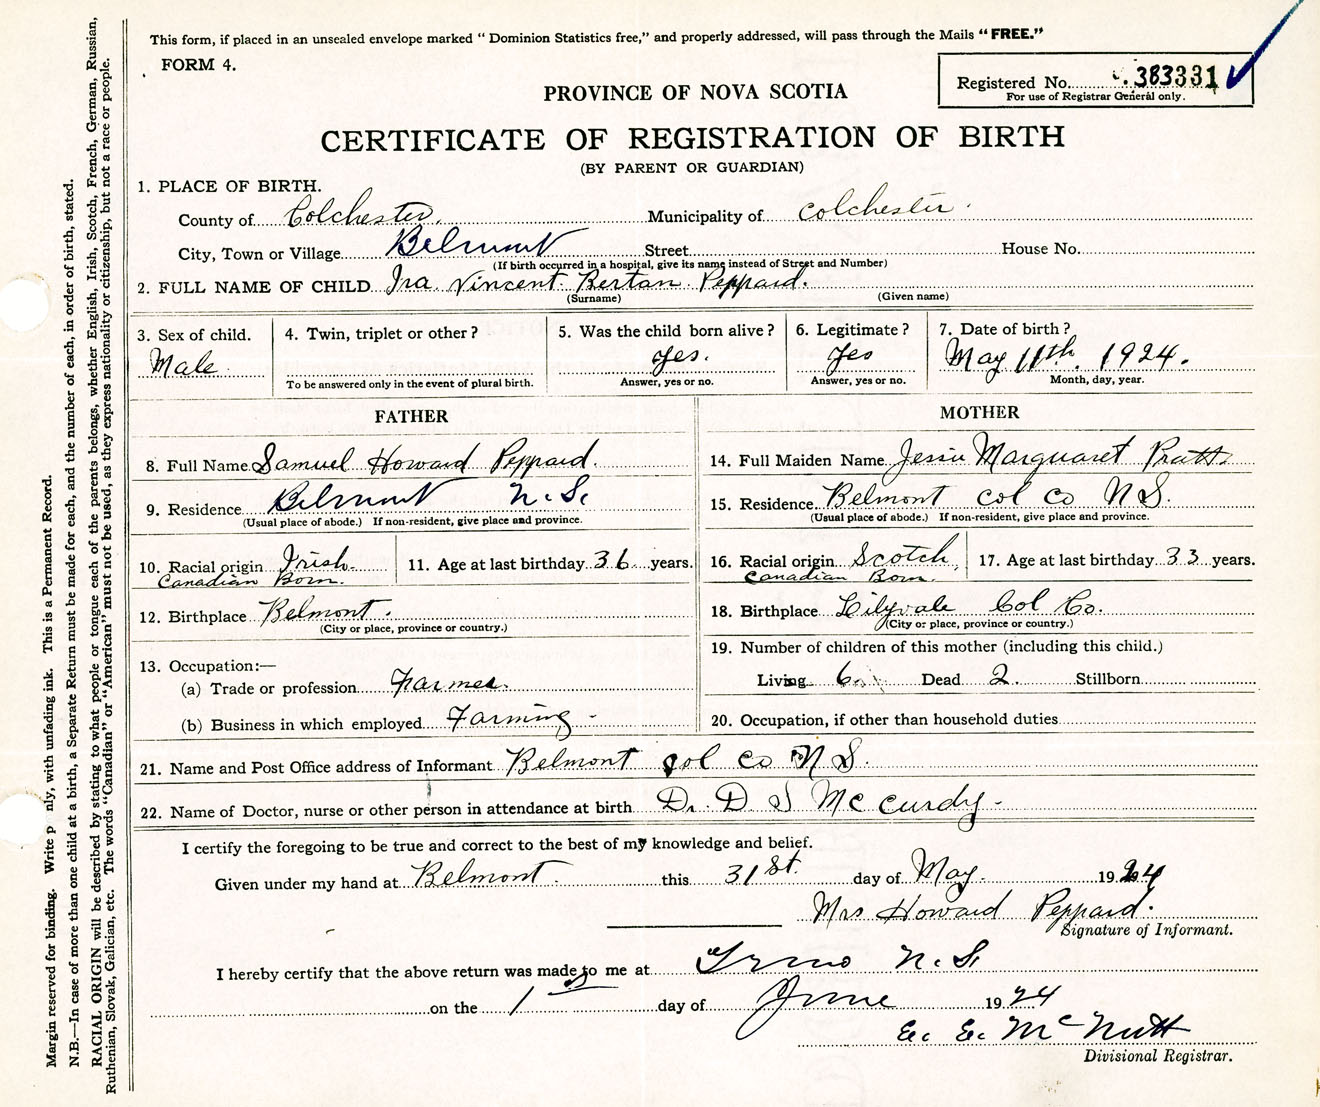 This form, if placed in an unsealed envelope marked "Dominion Statistics free," and properly addressed, will pass through the Mails "FREE."
FORM 4.
Registered No. 383331
For use of Registrar General only.
PROVINCE OF NOVA SCOTIA
CERTIFICATE OF REGISTRATION OF BIRTH
(BY PARENT OR GUARDIAN)
1. PLACE OF BIRTH.
County of Colchester. Municipality of Colchester.
City, Town or Village Belmont Street House No.
(If birth occurred in a hospital, give its name instead of Street and Number)
2. FULL NAME OF CHILD Ira Vincent Bertan Peppard.
(Surname) (Given name)
3. Sex of child. 4. Twin, triplet or other? 5. Was the child born alive? 6. Legitimate? 7. Date of birth?
Male yes. Yes May 11th 1924.
To be answered only in the event of plural birth. Answer, yes or no. Answer, yes or no. Month, day, year.
FATHER
8. Full Name Samuel Howard Peppard.
9. Residence Belmont N.S.
(Usual place of abode.) If non-resident, give place and province.
10. Racial origin Irish. 11. Age at last birthday 36 years.
Canadian Born.
12. Birthplace Belmont.
(City or place, province or country.)
13. Occupation:—
(a) Trade or profession Farmer.
(b) Business in which employed Farming.
MOTHER
14. Full Maiden Name Jessie Marguaret Pratt.
15. Residence Belmont Col Co N S.
(Usual place of abode.) If non-resident, give place and province.
16. Racial origin Scotch, 17. Age at last birthday 33 years.
Canadian Born.
18. Birthplace Lilyvale Col Co.
(City or place, province or country.)
19. Number of children of this mother (including this child.)
Living 6. Dead 2. Stillborn
20. Occupation, if other than household duties
21. Name and Post Office address of Informant Belmont Col Co N S.
22. Name of Doctor, nurse or other person in attendance at birth Dr. D S McCurdy.
I certify the foregoing to be true and correct to the best of my knowledge and belief.
Given under my hand at Belmont. this 31st. day of May. 1924
Mrs Howard Peppard.
Signature of Informant.
I hereby certify that the above return was made to me at Truro N.S.
on the 1st day of June 1924
E. E. McNutt
Divisional Registrar.
Margin reserved for binding. Write p nly, with unfading ink. This is a Permanent Record.
N.B.—In case of more than one child at a birth, a Separate Return must be made for each, and the number of each, in order of birth, stated.
RACIAL ORIGIN will be described by stating to what people or tongue each of the parents belongs, whether English, Irish, Scotch, French, German, Russian,
Ruthenian, Slovak, Galician, etc. The words "Canadian" or "American" must not be used, as they express nationality or citizenship, but not a race or people.